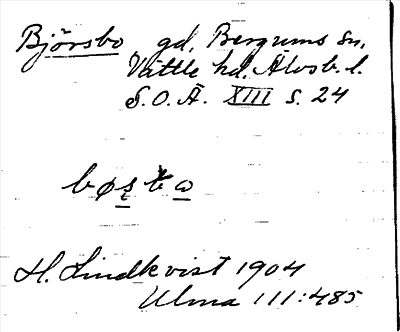 Björsbo gd, Bergums sn,
Vättle hd, Älvsb. l.
S.O.Ä. XIII s. 24
H. Lindkvist 1904
Ulma 111:485